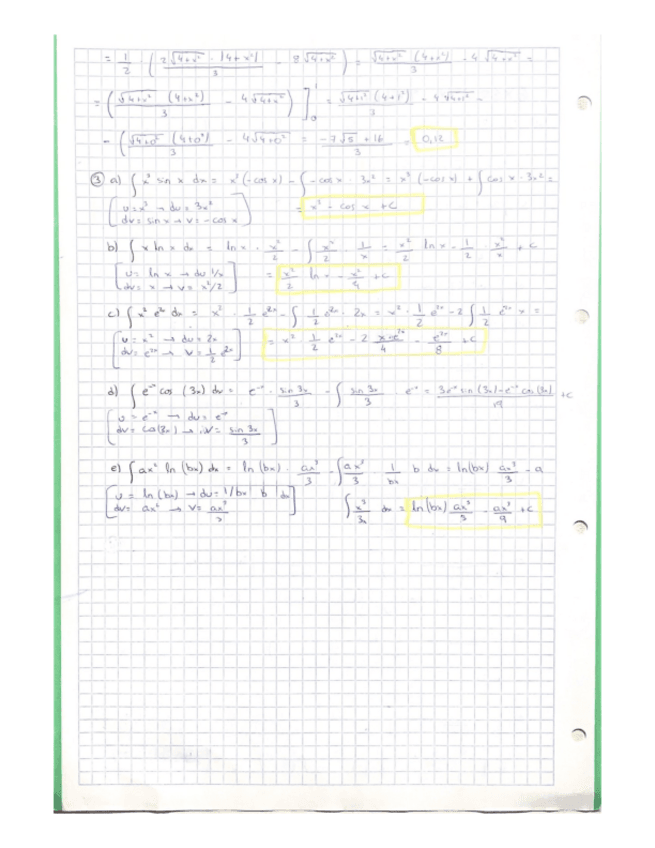 = 1/2 · ( 2√(4+x²) · |4+x²| / 3 - 8√(4+x²) ) = √(4+x²) (4+x²) / 3 - 4√(4+x²) =
= ( √(4+x²) (4+x²) / 3 - 4√(4+x²) ) ]₀¹ = √(4+1²) (4+1²) / 3 - 4√(4+1²) -
- ( √(4+0²) (4+0²) / 3 - 4√(4+0²) = -7√5 + 16 / 3 = 0,12
③ a) ∫ x³ sin x dx = x³ (-cos x) - ∫ -cos x · 3x² = x³ (-cos x) + ∫ cos x · 3x² =
[ u = x³ → du = 3x²
dv = sin x → v = -cos x ] = x³ - cos x + C
b) ∫ x ln x dx = ln x · x²/2 - ∫ x²/2 · 1/x = x²/2 ln x - 1/2 · x²/x + C
[ u = ln x → du 1/x
dv = x → v = x²/2 ] = x²/2 ln x - x²/4 + C
c) ∫ x² e²ˣ dx = x² · 1/2 e²ˣ - ∫ 1/2 e²ˣ · 2x = x² · 1/2 e²ˣ - 2 ∫ 1/2 e²ˣ x =
[ u = x² → du = 2x
dv = e²ˣ → v = 1/2 e²ˣ ] = x² 1/2 e²ˣ - 2 x·e²ˣ/4 - e²ˣ/8 + C
d) ∫ e⁻ˣ cos (3x) dx = e⁻ˣ · sin 3x / 3 - ∫ sin 3x / 3 · e⁻ˣ = 3e⁻ˣ sin (3x) - e⁻ˣ cos (3x) / + C
[ u = e⁻ˣ → du = e⁻ˣ
dv = cos(3x) → v = sin 3x / 3 ]
e) ∫ ax² ln (bx) dx = ln (bx) · ax³/3 - ∫ ax³/3 · 1/bx b dx = ln(bx) ax³/3 - a
[ u = ln (bx) → du = 1/bx b dx
dv = ax² → v = ax³/3 ] ∫ x³/3x dx = ln(bx) ax³/3 - ax³/9 + C